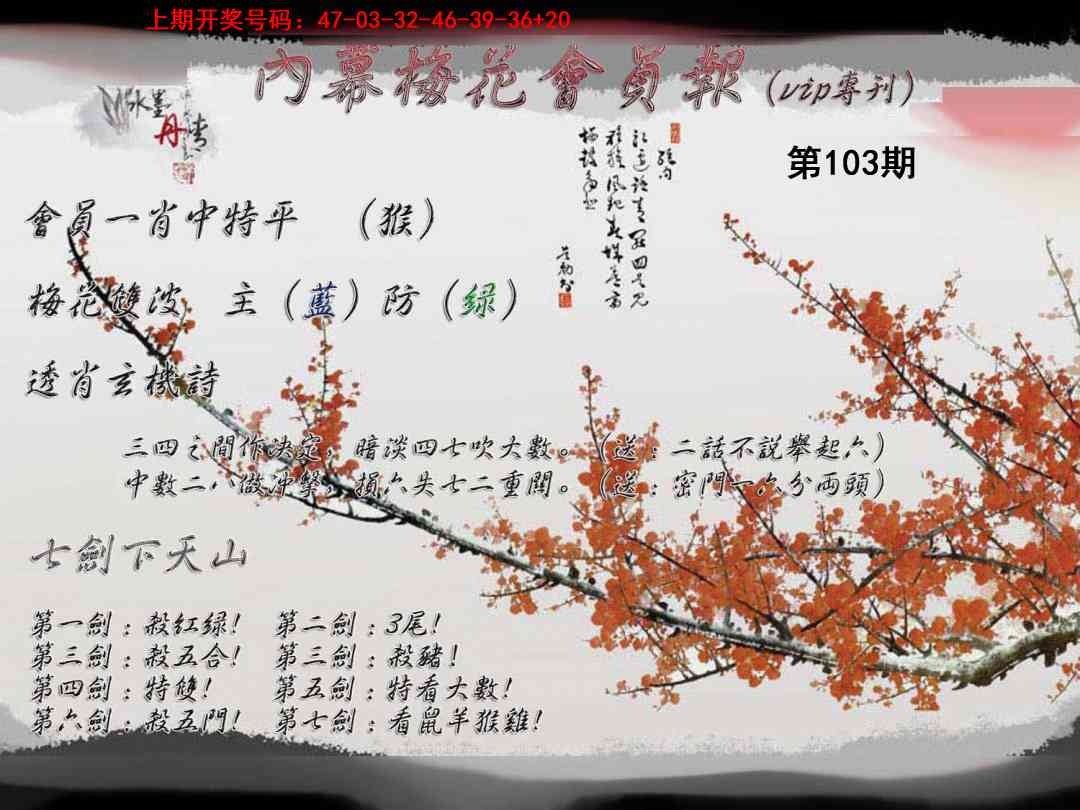 上期开奖号码：47-03-32-46-39-36+20
內幕梅花會員報（vip專刊）
水墨
丹青
第103期
會員一肖中特平　（猴）
梅花雙波　主（藍）防（绿）
透肖玄機詩
三四之間作决定，暗淡四七吹大數。（送：二話不説舉起六）
中數二八做沖擊，損六失七二重関。（送：密門一六分両頭）
七劍下天山
第一劍：殺紅绿！　第二劍：3尾！
第三劍：殺五合！　第三劍：殺豬！
第四劍：特雙！　第五劍：特看大數！
第六劍：殺五門！　第七劍：看鼠羊猴雞！